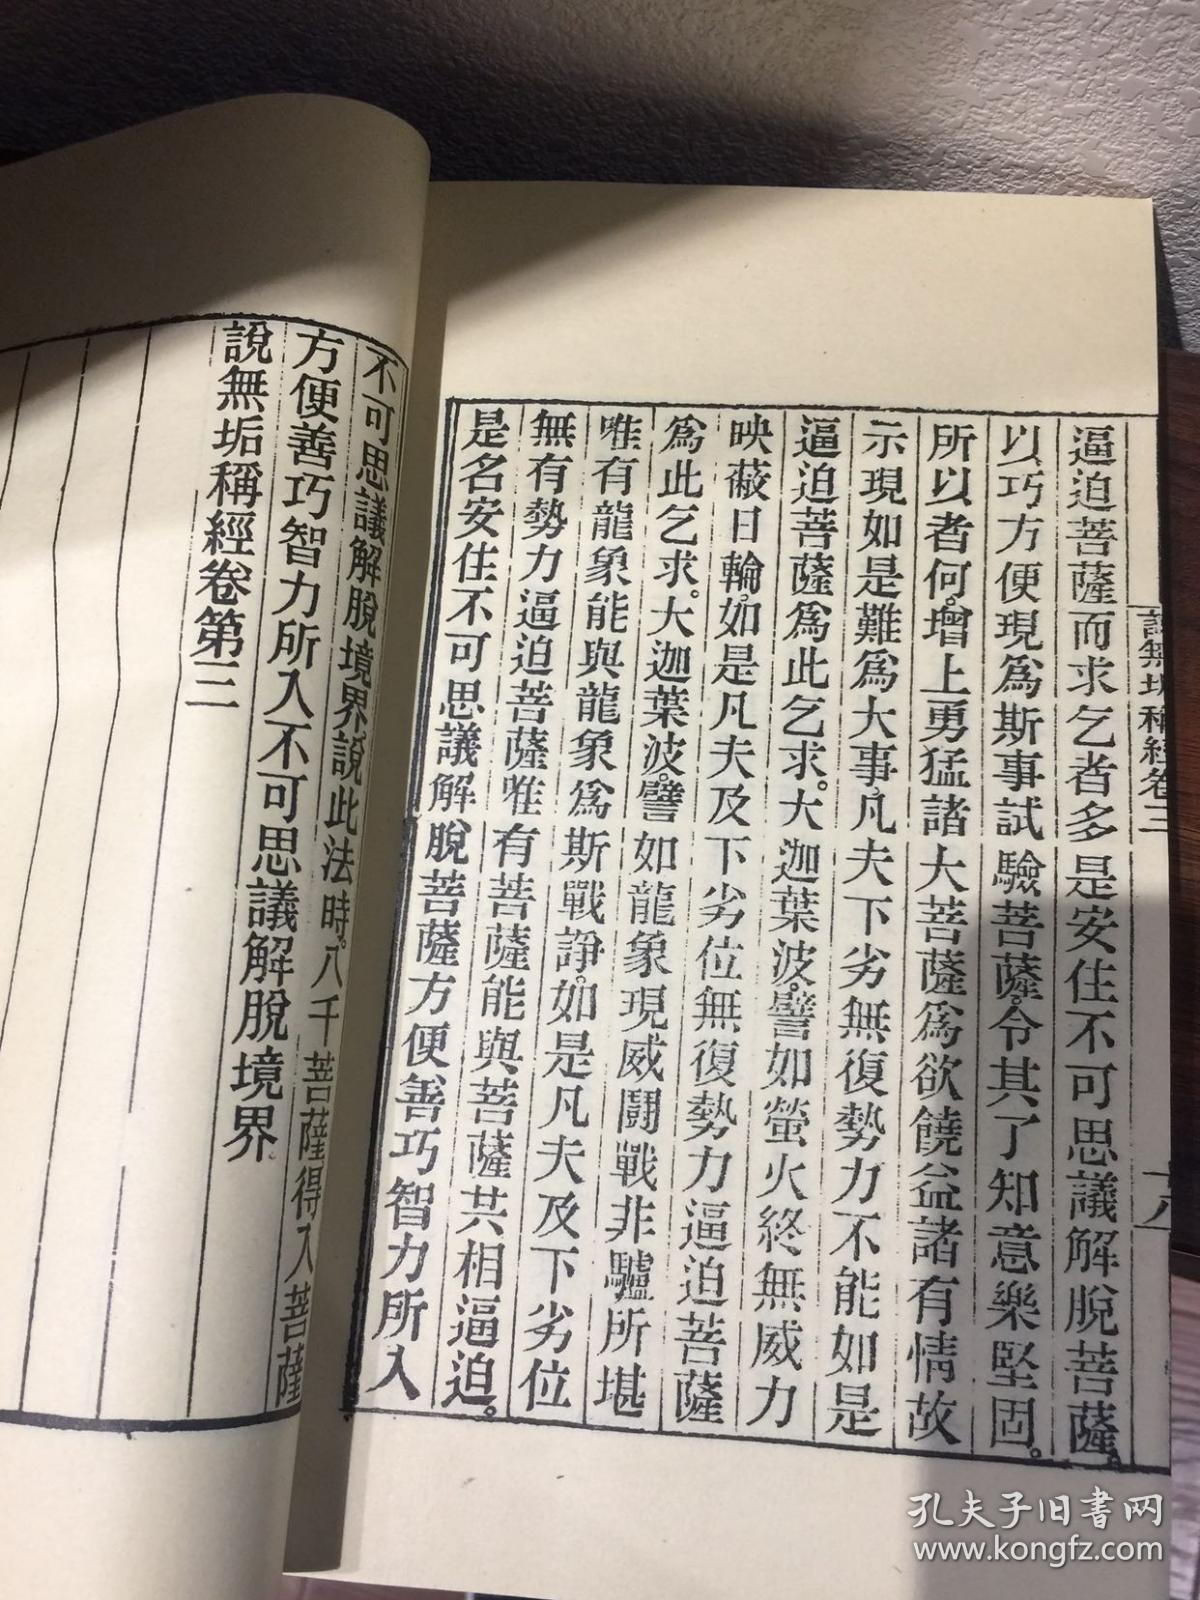 說無垢稱經卷三
十八
逼迫菩薩而求乞者多是安住不可思議解脫菩薩。
以巧方便現爲斯事試驗菩薩。令其了知意樂堅固。
所以者何。增上勇猛諸大菩薩爲欲饒益諸有情故
示現如是難爲大事。凡夫下劣無復勢力不能如是
逼迫菩薩爲此乞求。大迦葉波。譬如螢火終無威力
映蔽日輪。如是凡夫及下劣位無復勢力逼迫菩薩
爲此乞求。大迦葉波。譬如龍象現威鬪戰非驢所堪
唯有龍象能與龍象爲斯戰諍。如是凡夫及下劣位
無有勢力逼迫菩薩唯有菩薩能與菩薩共相逼迫。
是名安住不可思議解脫菩薩方便善巧智力所入
不可思議解脫境界。說此法時。八千菩薩得入菩薩
方便善巧智力所入不可思議解脫境界。
說無垢稱經卷第三
孔夫子旧书网
www.kongfz.com